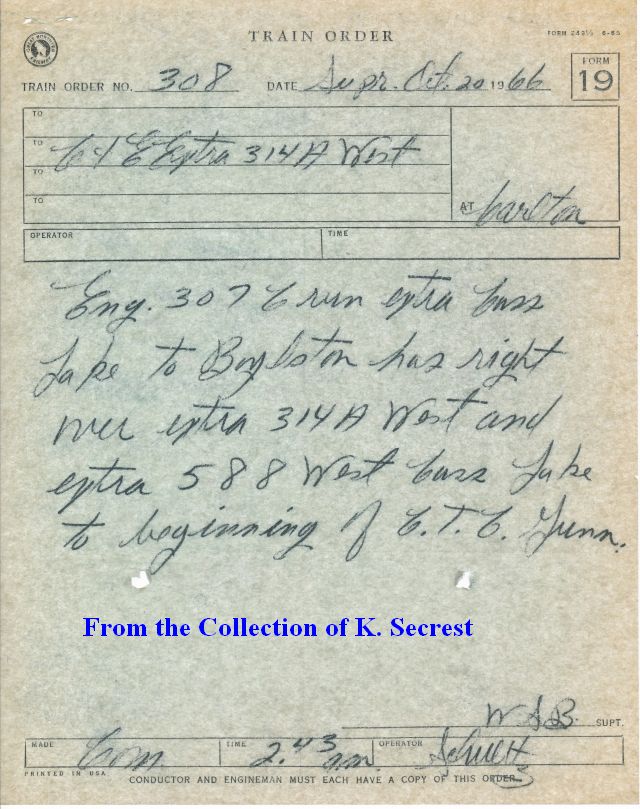 TRAIN ORDER
FORM 249½ 6-65
TRAIN ORDER NO. 308 DATE Supr. Oct. 20 1966
FORM 19
TO
TO C&E Extra 314A West
TO
AT Carlton
OPERATOR TIME
Eng. 307 C run extra Cass
Lake to Boylston has right
over extra 314A West and
extra 588 West Cass Lake
to beginning of C.T.C. Gunn.
From the Collection of K. Secrest
W S B. SUPT.
MADE Com TIME 2.43 am. OPERATOR
PRINTED IN USA
CONDUCTOR AND ENGINEMAN MUST EACH HAVE A COPY OF THIS ORDER